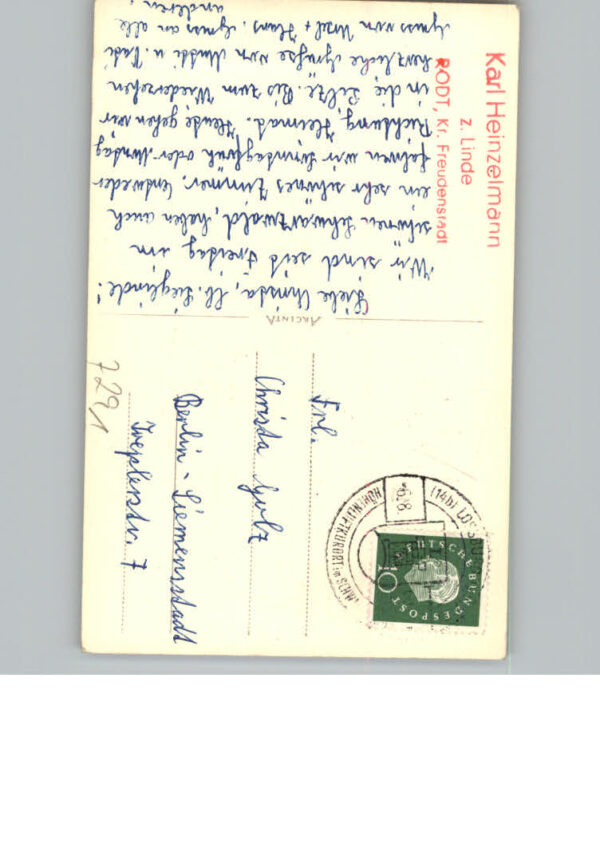 Karl Heinzelmann
z. Linde
RODT, Kr. Freudenstadt
Liebe Christa, lb. Sieglinde!
Wir sind seit Freitag im
schönen Schwarzwald, haben auch
ein sehr schönes Zimmer. Entweder
fahren wir Sonntagfrüh oder Montag
Richtung Heimat. Heute gehen wir
in die Pilze. Bis zum Wiedersehen
herzliche Grüsse von Mutti u. Vati
Gruss von Ursel + Hans. Gruss an alle
anderen.
ARCINTA
Frl.
Christa Golz
Berlin - Siemensstadt
7
7291
(14b)
-6.-8
HÖHENLUFTKURORT
DEUTSCHE BUNDESPOST
10